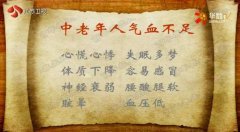 中老年人气血不足
心慌心悸 失眠多梦
体质下降 容易感冒
神经衰弱 腰酸腿软
眩晕 血压低